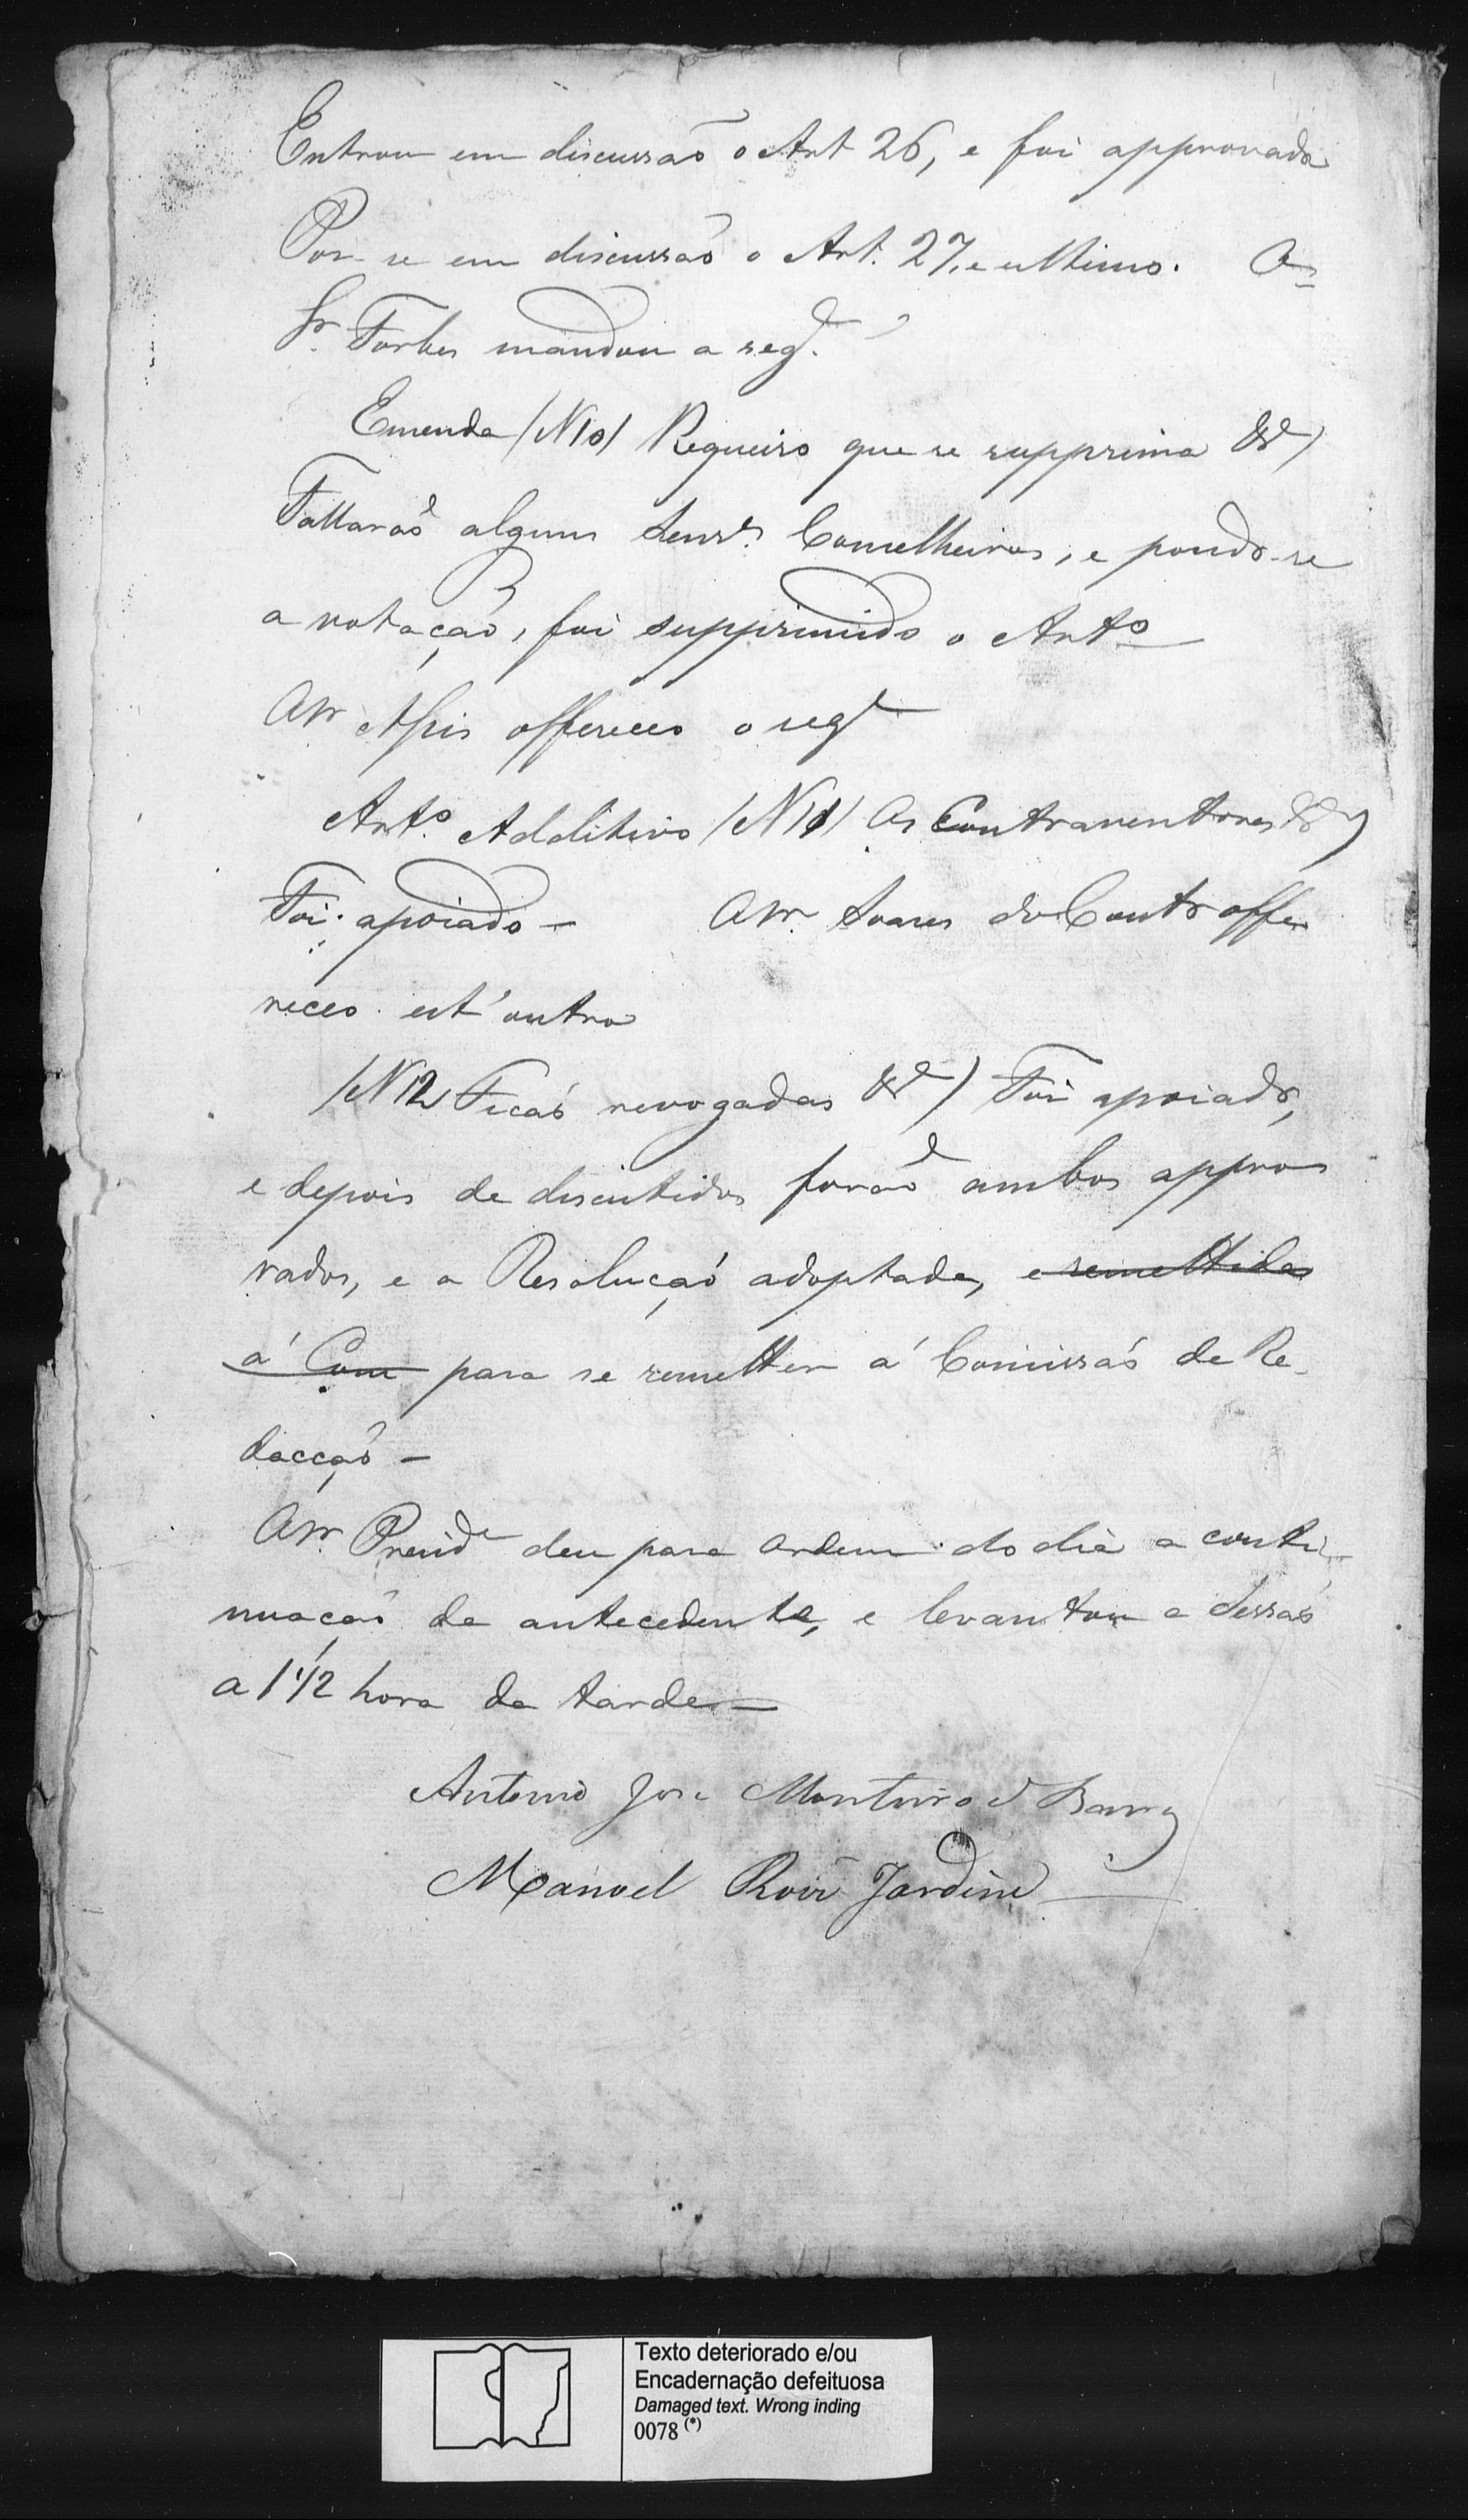 Entrou em discussão o Art 26, e foi approvado
Pos-se em discussão o Art. 27, e ultimo. O
Sr. Forbes mandou a seg.e
Emenda (N 10) Requeiro que se supprima &ª)
Fallarão alguns Senr.s Conselheiros, e pondo-se
a votação, foi supprimido o Art.º
O Sr. Assis offereceo o seg.e
Art.º Additivo (N 11) Os Contraventores &ª)
Foi apoiado — O Sr. Soares do Couto offe
receo est'outro
(N 12 Ficaõ revogadas &ª) Foi apoiado,
e depois de discutidos foraõ ambos appro
vados, e a Resoluçaõ adoptada, e remettida
á Com para se remetter á Comissaõ de Re-
dacçaõ —
O Sr. Presid.e deu para ordem do dia a conti-
nuaçaõ da antecedente, e levantou a Sessaõ
a 1 1/2 hora da tarde —
Antonio Jose Monteiro de Barros
Manoel Roiz Jardim
Texto deteriorado e/ou
Encadernação defeituosa
Damaged text. Wrong inding
0078 (*)